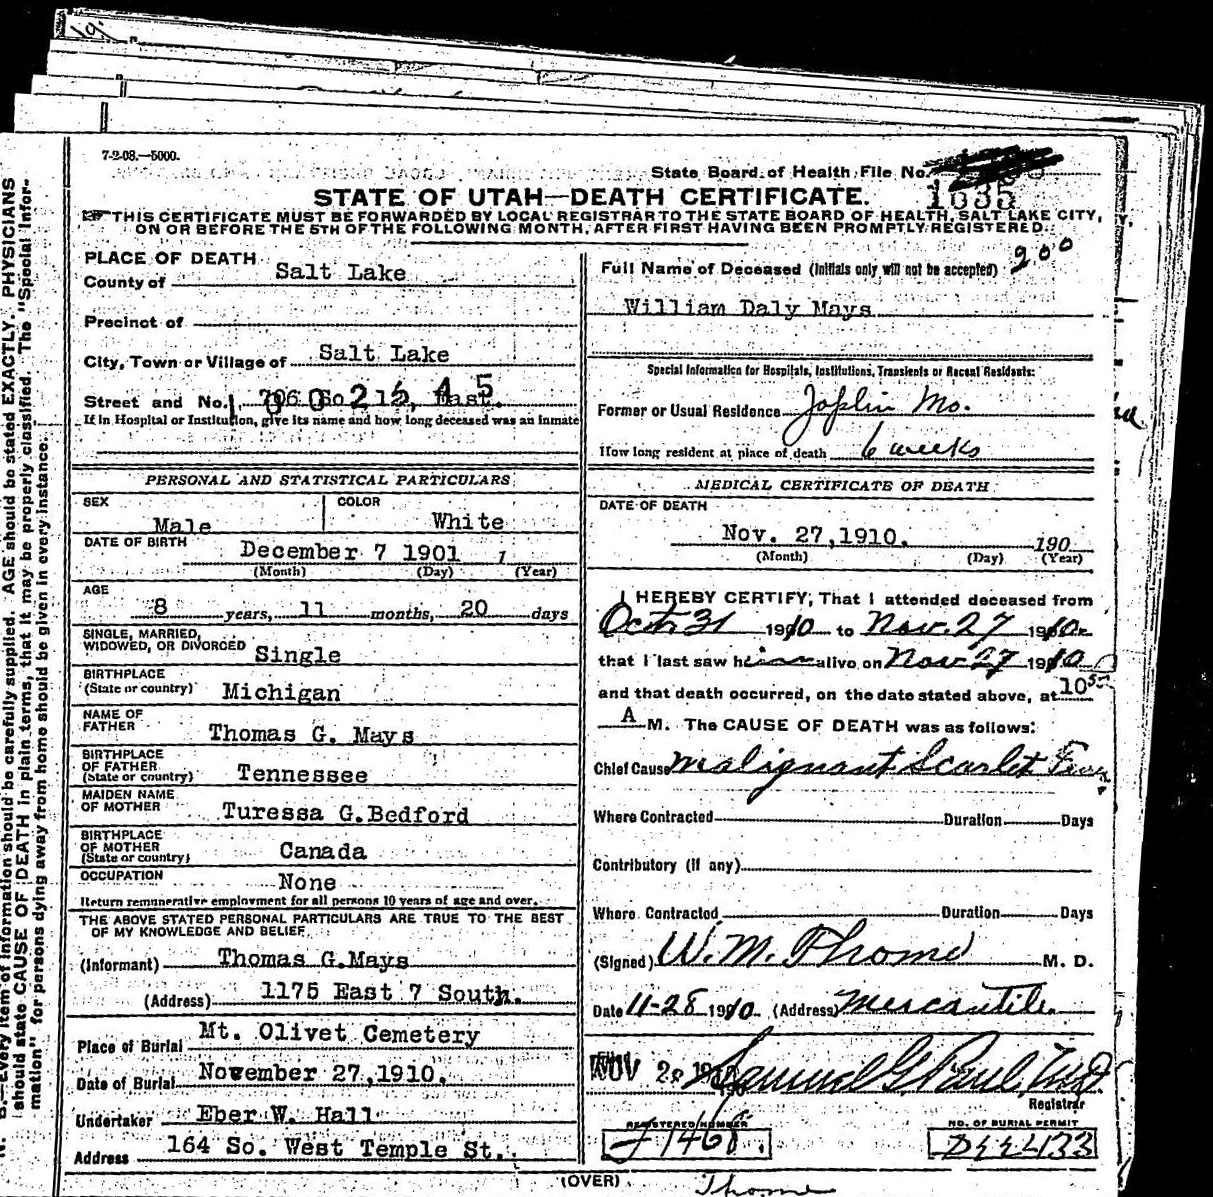 7-2-08.—5000.
State Board of Health File No.
1635
STATE OF UTAH—DEATH CERTIFICATE.
THIS CERTIFICATE MUST BE FORWARDED BY LOCAL REGISTRAR TO THE STATE BOARD OF HEALTH, SALT LAKE CITY,
ON OR BEFORE THE 5TH OF THE FOLLOWING MONTH, AFTER FIRST HAVING BEEN PROMPTLY REGISTERED.
PLACE OF DEATH
County of Salt Lake
Precinct of
City, Town or Village of Salt Lake
Street and No. So East.
If in Hospital or Institution, give its name and how long deceased was an inmate
PERSONAL AND STATISTICAL PARTICULARS
SEX Male COLOR White
DATE OF BIRTH December 7 1901 1
(Month) (Day) (Year)
AGE
8 years, 11 months, 20 days
SINGLE, MARRIED,
WIDOWED, OR DIVORCED Single
BIRTHPLACE
(State or country) Michigan
NAME OF
FATHER Thomas G. Mays
BIRTHPLACE
OF FATHER
(State or country) Tennessee
MAIDEN NAME
OF MOTHER Turessa G.Bedford
BIRTHPLACE
OF MOTHER
(State or country) Canada
OCCUPATION None
Return remunerative employment for all persons 10 years of age and over.
THE ABOVE STATED PERSONAL PARTICULARS ARE TRUE TO THE BEST
OF MY KNOWLEDGE AND BELIEF.
(Informant) Thomas G.Mays
(Address) 1175 East 7 South.
Place of Burial Mt. Olivet Cemetery
Date of Burial November 27,1910.
Undertaker Eber W. Hall
Address 164 So. West Temple St.
2.00
Full Name of Deceased (Initials only will not be accepted)
William Daly Mays
Special Information for Hospitals, Institutions, Transients or Recent Residents:
Former or Usual Residence Joplin Mo.
How long resident at place of death 6 weeks
MEDICAL CERTIFICATE OF DEATH
DATE OF DEATH
Nov. 27,1910. 190
(Month) (Day) (Year)
I HEREBY CERTIFY, That I attended deceased from
Oct. 31 1910 to Nov. 27 1910
that I last saw him alive on Nov 27 1910
and that death occurred, on the date stated above, at 10
A M. The CAUSE OF DEATH was as follows:
Chief Cause Malignant Scarlet Fever
Where Contracted Duration Days
Contributory (if any)
Where Contracted Duration Days
(Signed) W. M. Thome M. D.
Date 11-28 1910 (Address) Mercantile.
NOV 28 Samuel G. Paul, M.D.
Registrar
REGISTERED NUMBER
J 1468.
NO. OF BURIAL PERMIT
(OVER)
Thome
N. B.—Every item of information should be carefully supplied. AGE should be stated EXACTLY. PHYSICIANS
should state CAUSE OF DEATH in plain terms, that it may be properly classified. The "Special Infor-
mation" for persons dying away from home should be given in every instance.